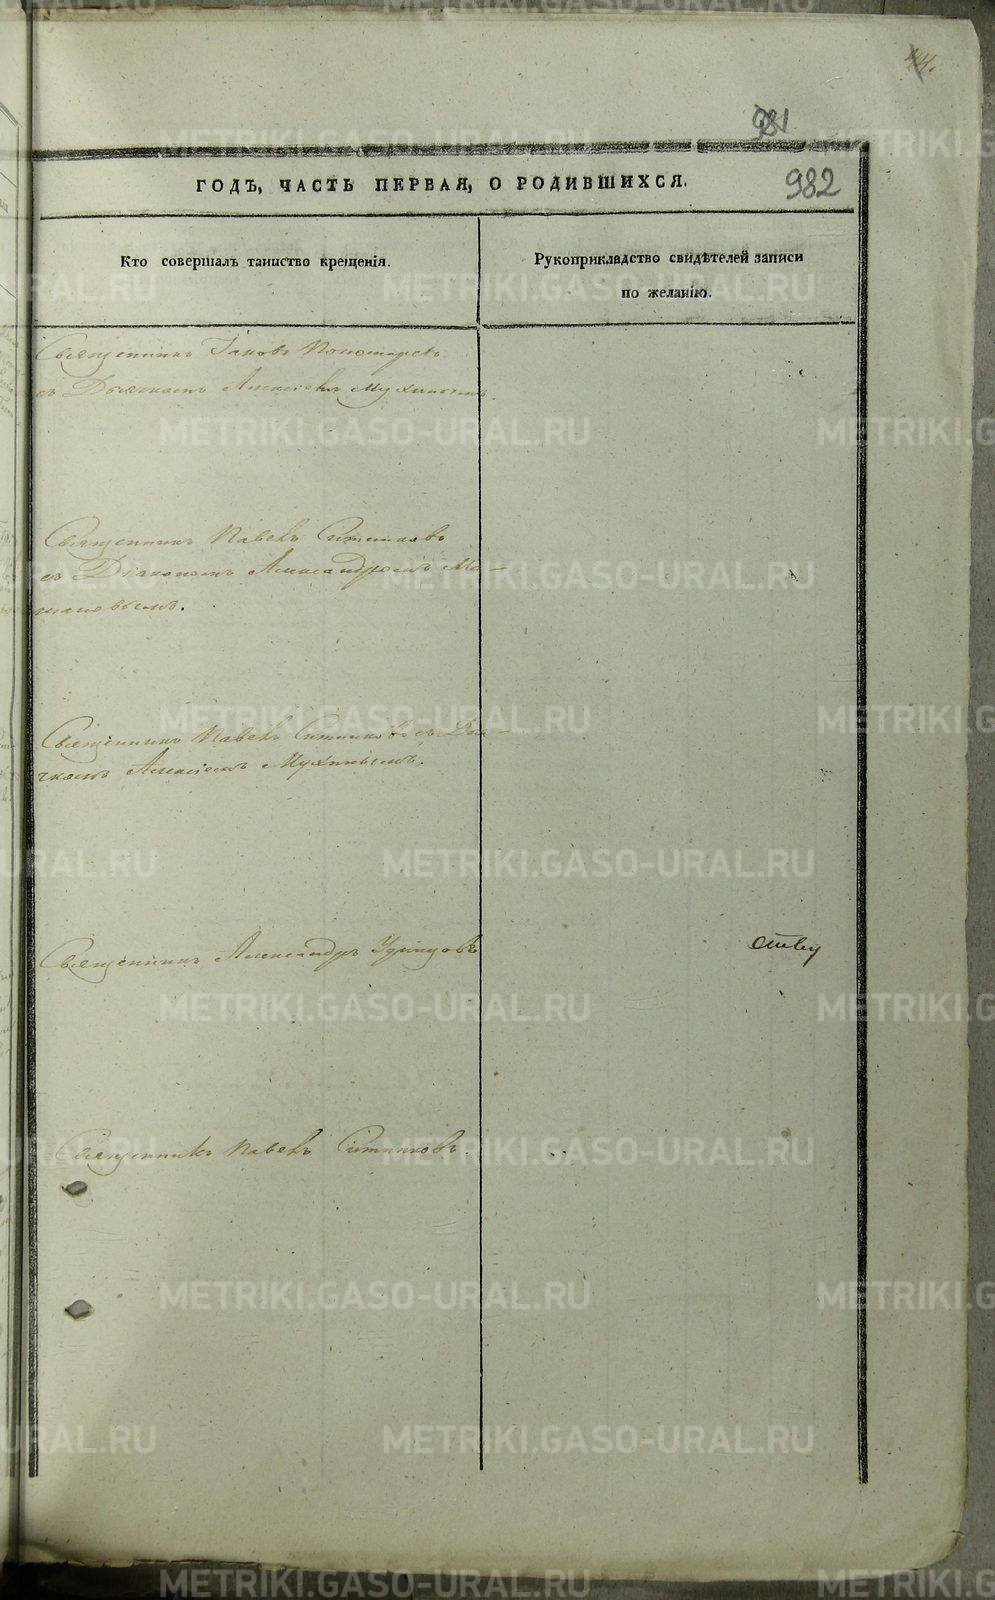 44.
981
ГОДЪ, ЧАСТЬ ПЕРВАЯ, О РОДИВШИХСЯ. 982
Кто совершалъ таинство крещенія.
Рукоприкладство свидѣтелей записи
по желанію.
Священникъ Іаковъ Пономаревъ
съ Дьячкомъ Алексіемъ Мухинымъ.
Священникъ Павелъ Ситниковъ
съ Діакономъ Александромъ Ма-
Священникъ Павелъ Ситниковъ съ Дья-
чкомъ Алексіемъ Мухинымъ.
Священникъ Александръ Удинцовъ
ству
Священникъ Павелъ Ситниковъ.
METRIKI.GASO-URAL.RU